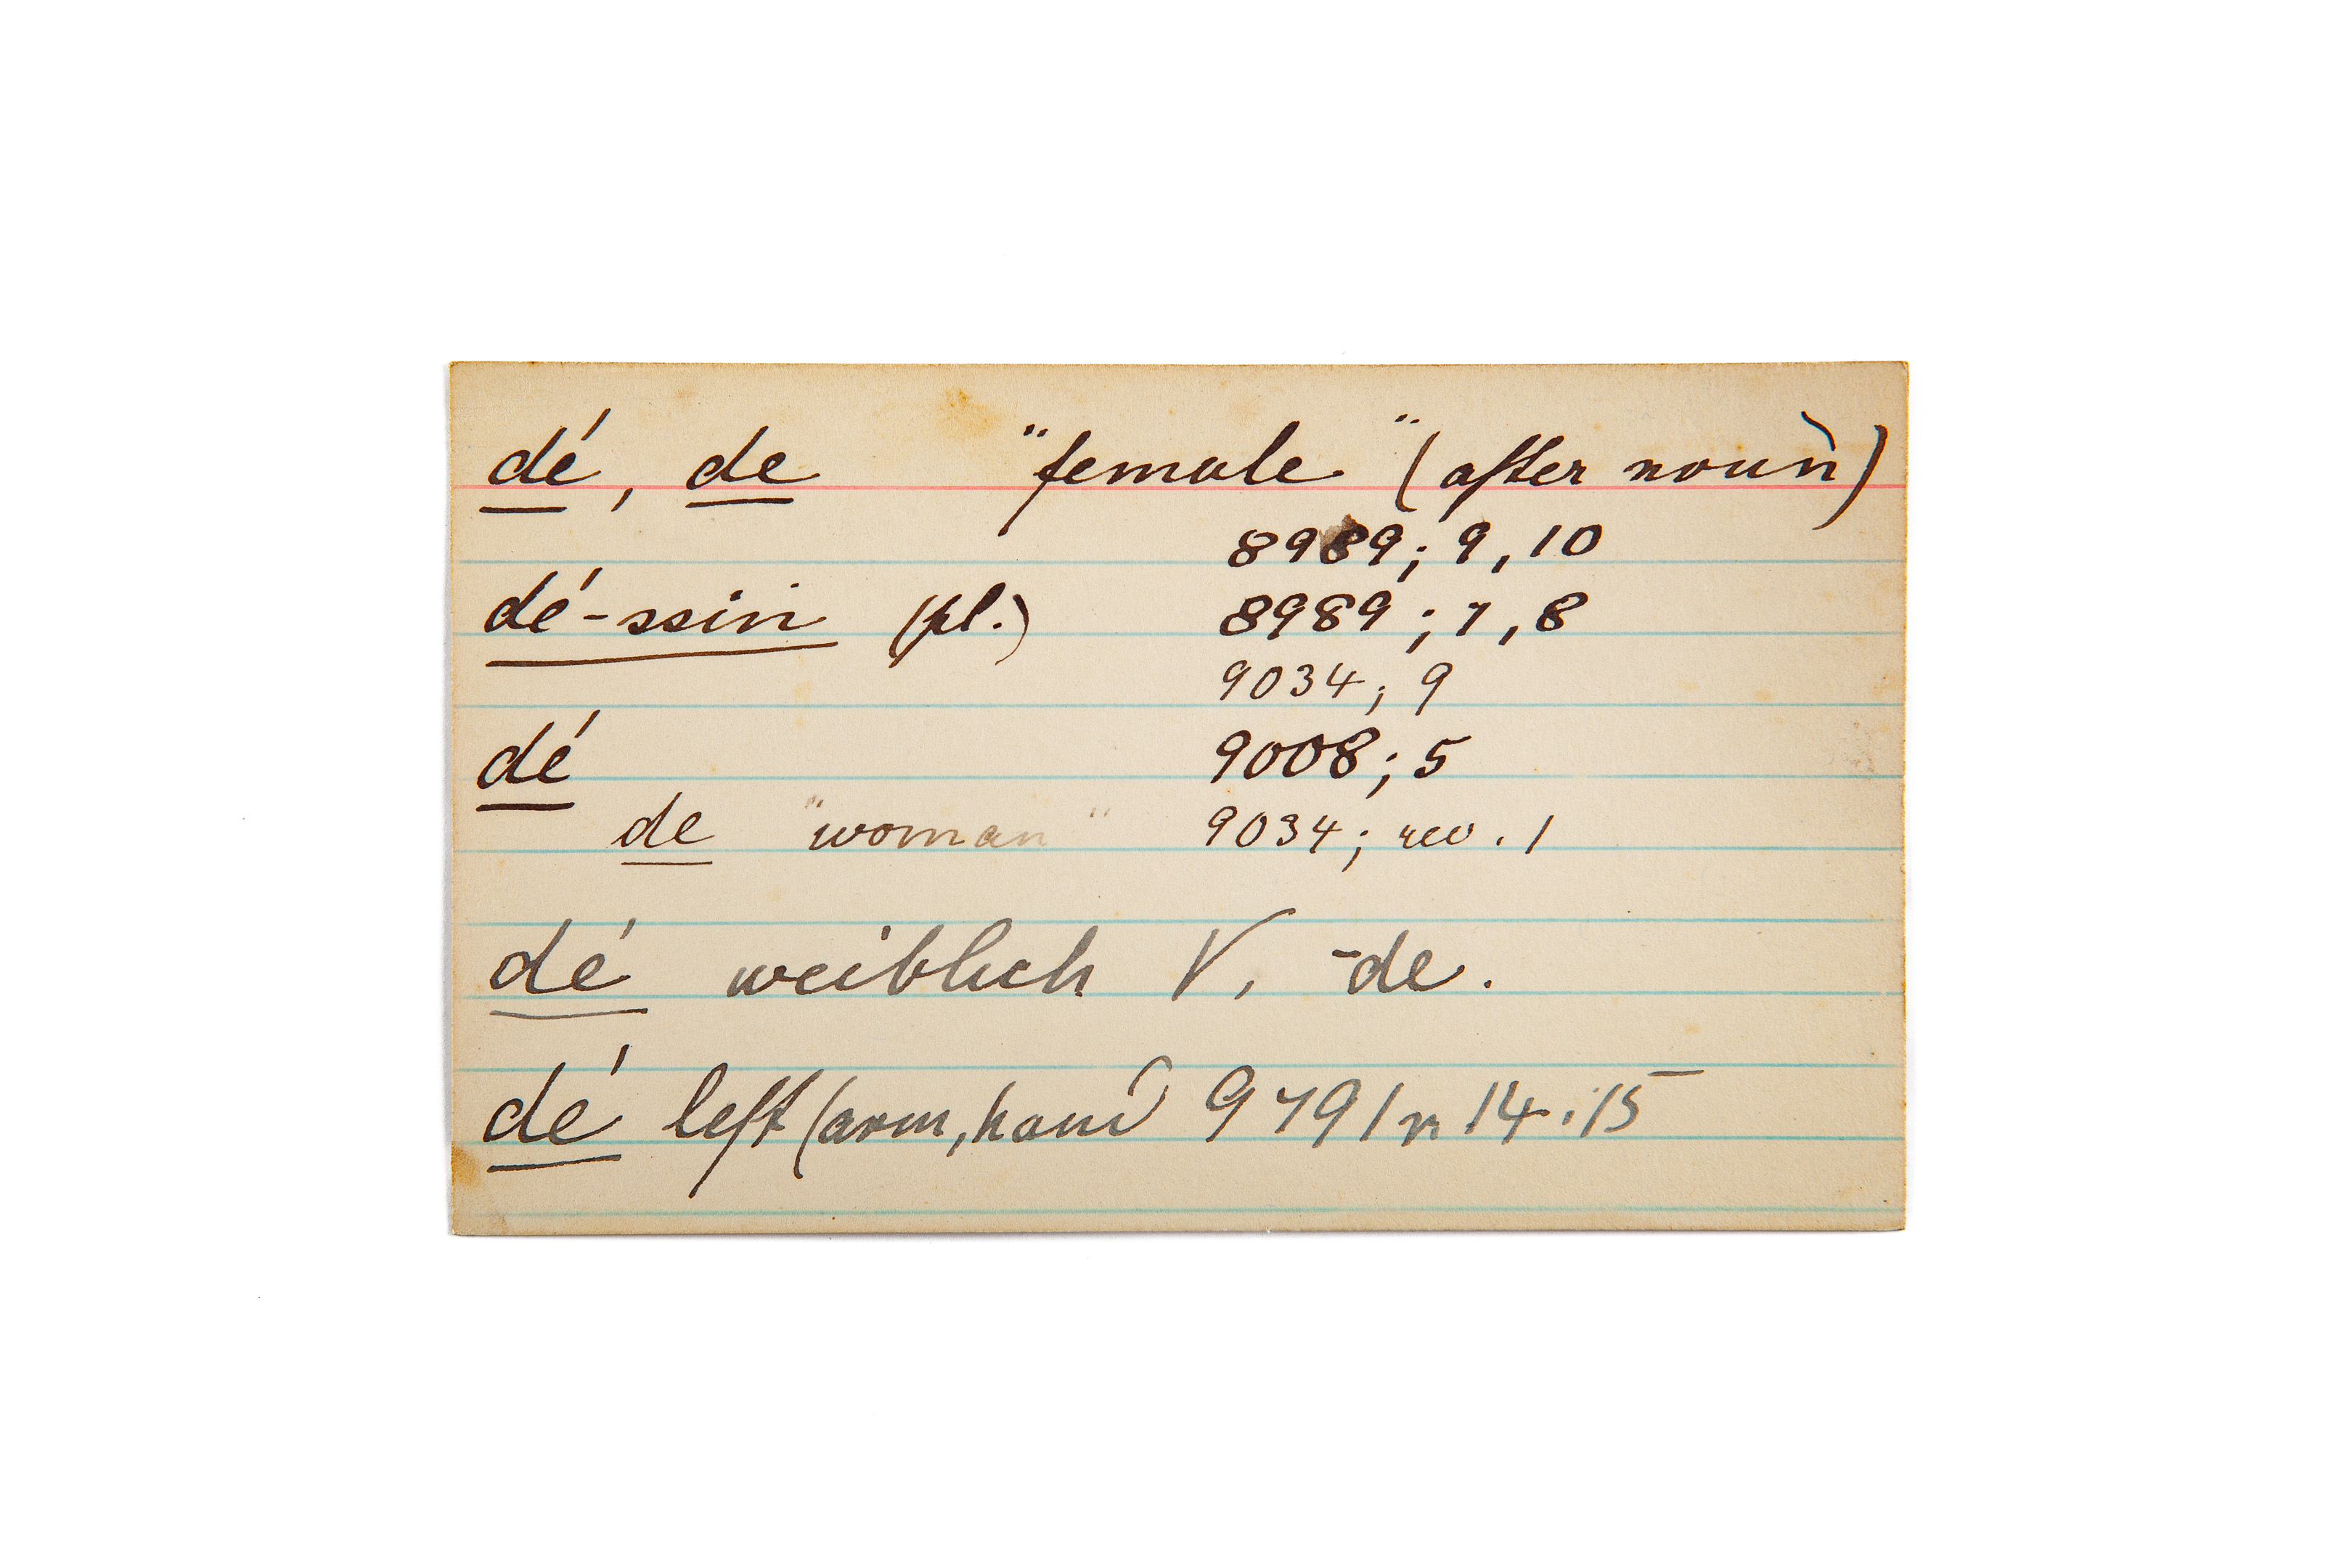 dé, de "female" (after noun)
8989; 9, 10
dé-ssin (pl.) 8989; 7, 8
9034; 9
dé 9008; 5
de "woman" 9034; rev. 1
dé weiblich V, -de.
dé left (arm, hand) 9791 14 15